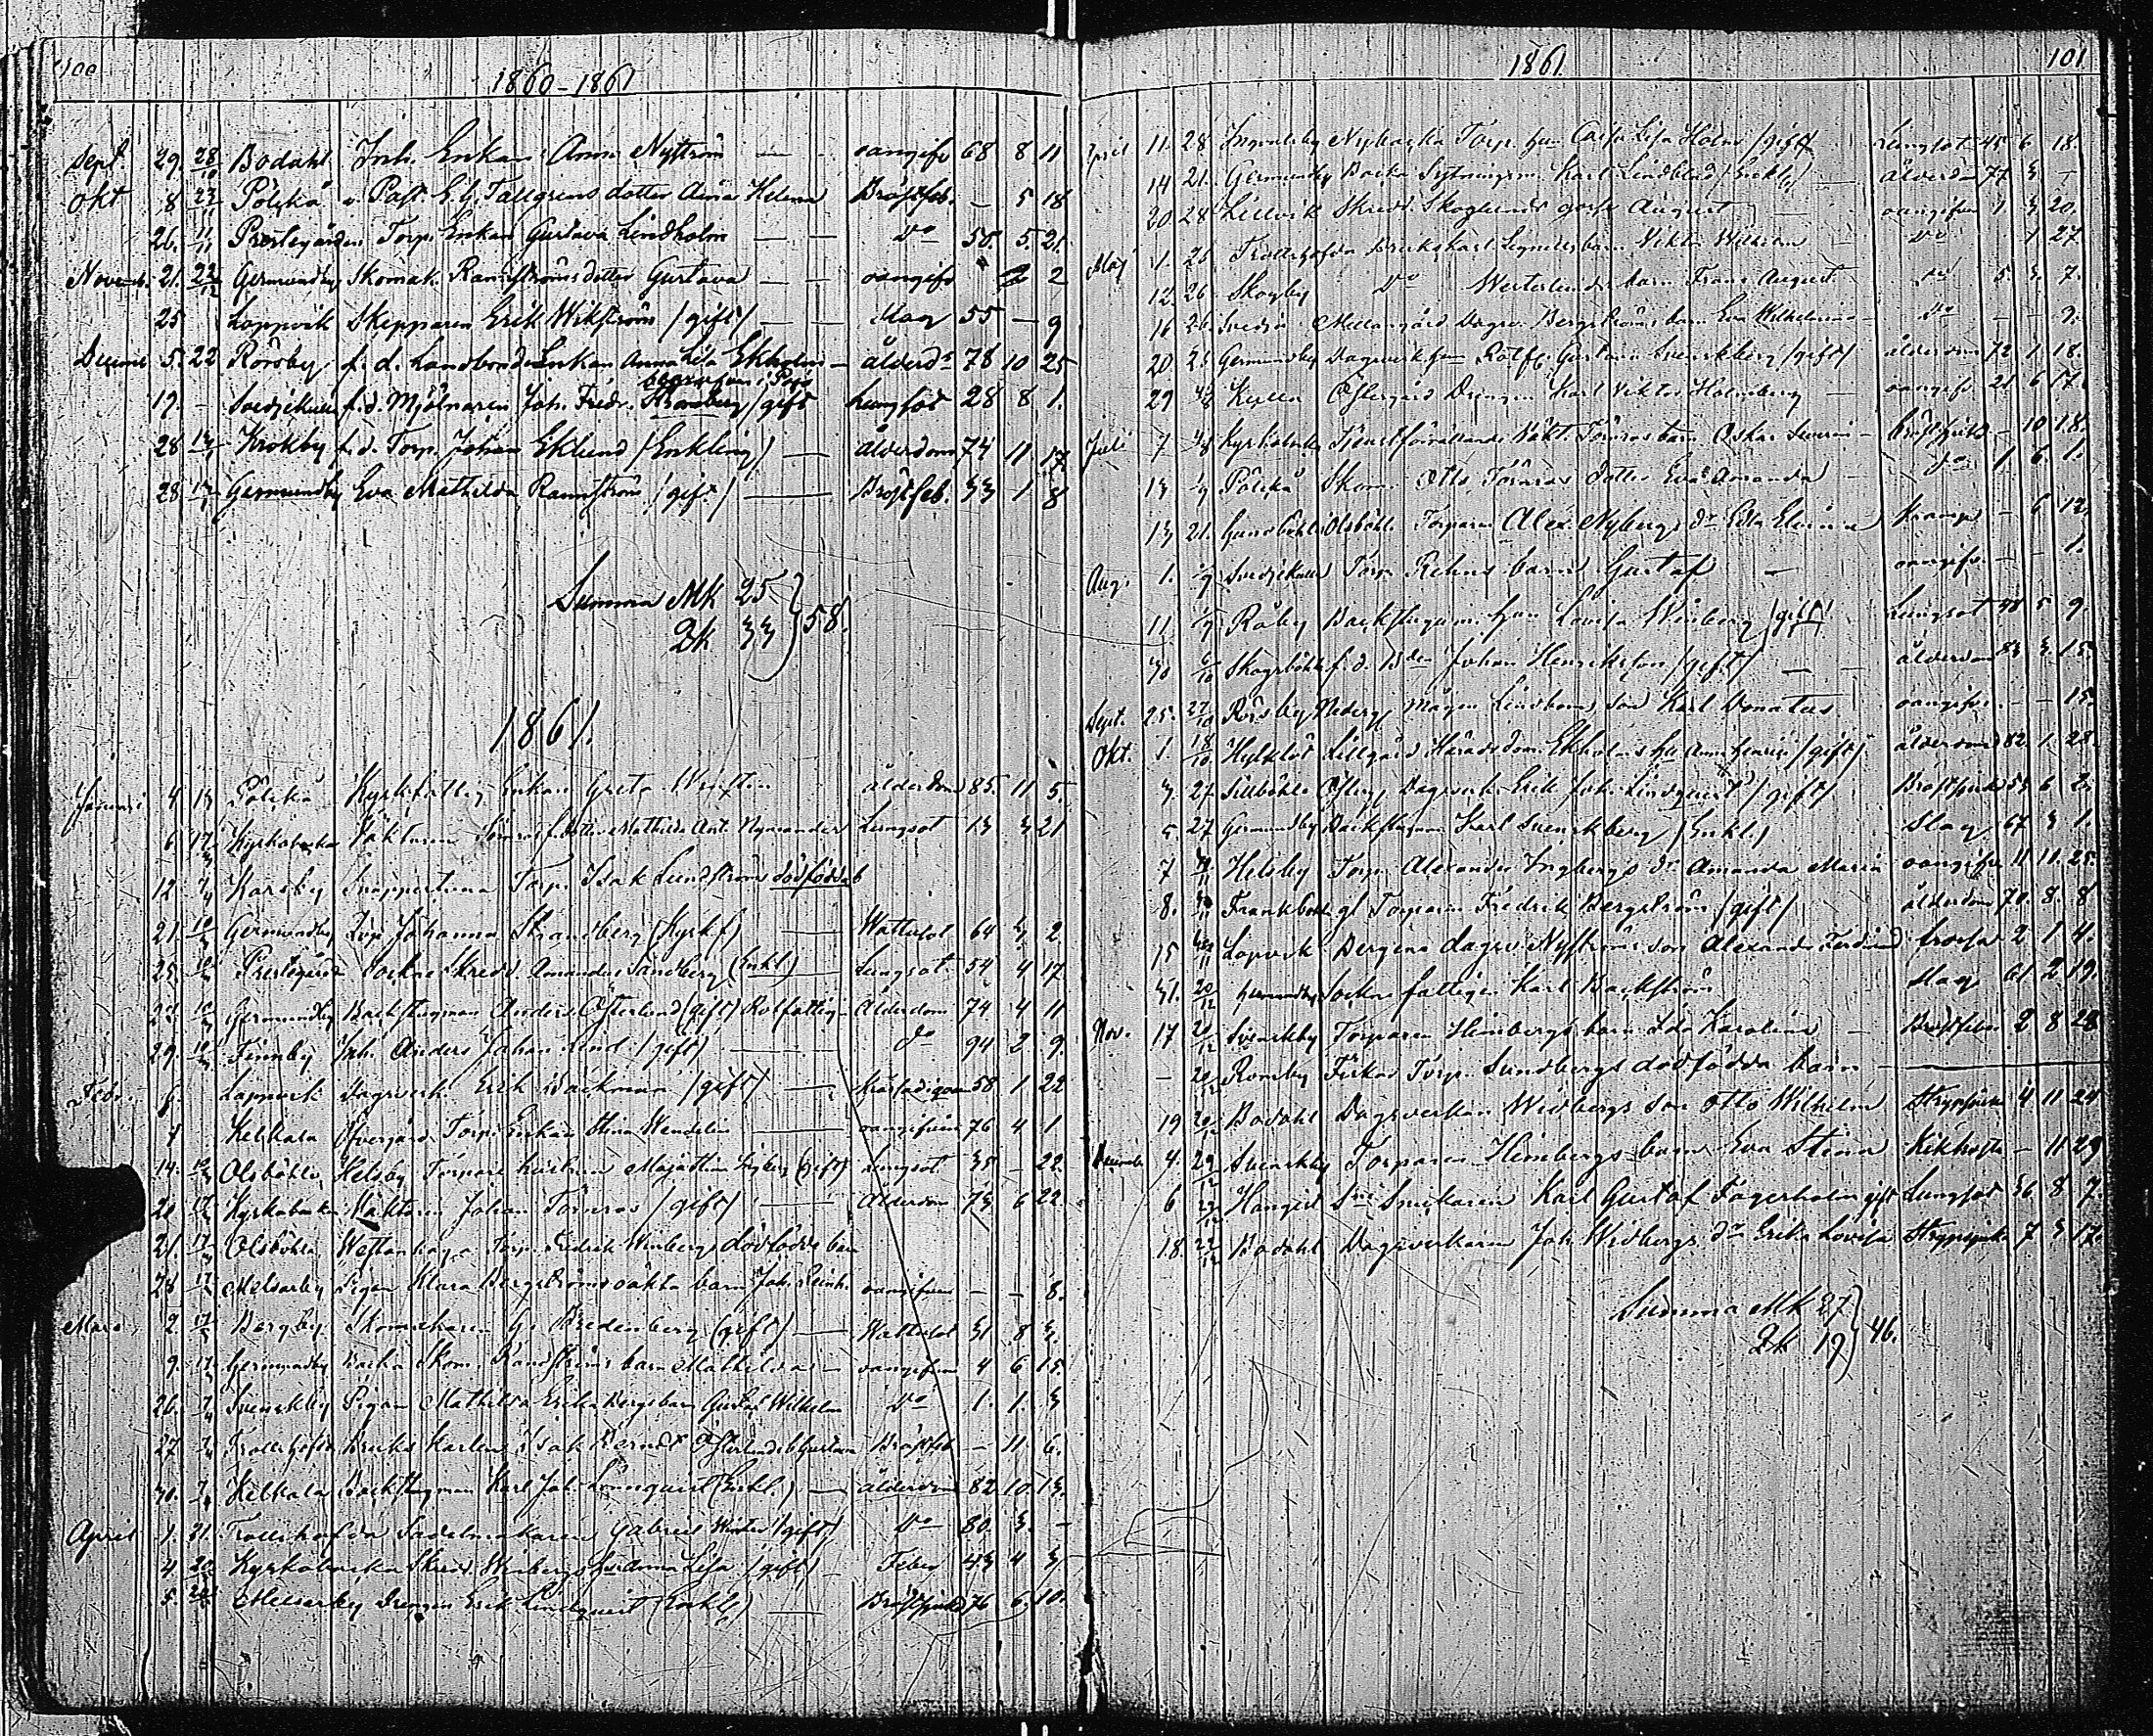 100
1860-1861
Sept 29. 28/10 Bodahl Inh. Enkan Anna Nyström oangifv 68 8 11
Okt 8 Pölskå v. Past. E. G. Tallgrens dotter Helena Bröstfeb. 5 18
26. 11/11 Prestegården Torp. Enkan Gustava Lindholm Do 58. 5. 21.
Novemb. 21. 22/12 Germundby Skomak. Rannströms dotter Gustava oangifv 2
25 Lappvik Skepparen Erik Wikström (gift) Slag 55 – 9
Decemb 5. 22 Rörsby f. d. Landbonde Enkan Anna Lisa Ekholm ålderd 78 10 25
begrafven i Pojo
19. – Svedjekulla f. d. Mjölnaren Joh. Fredr. Kramberg (gift Lungsot 28 8 1.
28 Krokby f. d. Torp. Johan Eklund (Enkling) ålderdom 74 11 17
28 Germundby Eva Mathilda Rannström (gift) Bröstfeb. 33 1 8
Summa Mk 25
Qk 33 } 58.
1861.
Januari 4 13 Pölskå Kyrkfattig Enkan Greta ålderdom 85. 11 5.
6 Kyrkobacka dotter Mathilda Ant. Nymander Lungsot 13 3 21
12 Karsby Snappertuna Torp. Isak Lundströms dödfödda b
21. Germundby Johanna Strandberg (Kyrkf) Wattusot 64 3 2
25. Prestegårds Sockne Skredd. Amandus Sandberg (Enkl) Lungsot 54 4 17.
Germundby Backstugman Anders Österlund (gift) Rotfattig Ålderdom 74 4 11
29. Finnby Inh. Anders Johan Lind (gift) Do 94 2 9.
Febr. Lappvik Dagsverk. Erik Backman (gift) 58 1 22
Kelkala Öfvergård Torp. Enkan Stina Wendelin oangifven 76 4 1
14. Olsböhle Helsby Torpare hustrun Maja Stina (gift) Lungsot 35 – 22.
20 Kyrkobacka Wäktaren Johan Törnros (gift) Ålderdom 73 6 22.
21. Olsböhle Torp. Fredrik Winbergs dödfödda barn
28 Melsarby Pigan Klara Bergströms oäkta barn Joh. Reinh. oangifven – – 8.
Mars 2. Bergby Skomakaren G. Bredenberg (gift) Wattusot 31 8 3
9. Germundby Backa Skom. Randströms barn Mathilda oangifven 4 6 15.
26. Svenskby Pigan Mathilda Erika Bergs barn Gustaf Wilhelm Do 1. 1. 3
27. Trollshofda Bruks Karlen Isak Berndt Österlunds b Gustava Bröstfeb – 11. 6.
30. Kelkala Backstugman Karl Joh. Lönnqvist (Enkl.) ålderdom 82 10 13.
April 1. 21. Trollshofda Sadelmakaren Gabriel Winter (gift) Do 80. 3. –
4 Kyrkobacka Skred. Winbergs hu Anna Lisa (gift) Feber 43 4 3
5. Melsarby Drengen Erik Lindqvist (Enkl) Bröstsjukd 76 6. 10.
1861
101
April 11. 28 Ingvalsby Nybacka Torp. hu Cajsa Lisa Holm (gift) Lungsot 45 6 18.
14 21. Germundby Backa Sytningsm. Karl Lindblad (Enkl) ålderdom 77 3 –
20 28 Lillvik Skredd. Skoglunds gosse August oangifven 1. 3 20.
Maj 1. 26 Trollshofda Brukskarl barn Viktor Wilhelm Do 1 27
12. 26 Skogby Do Westerlunds barn Frans August Do 5. 3. 7.
16 26. Svedja Mellangård Dagsv. Bergströms barn Eva Wilhelmina Do – – 9.
20 26 Germundby Dagsverk Gustava Svenskberg (gift) ålderdom 72 1 18.
29 Kulla Östergård Drengen Karl Viktor Holmberg oangifv. 21 6 17.
Juli 7 Kyrkobacka Tjenstförrättande Wäkt. Törnros barn Oskar Severin bröstsjukd – 10 18.
13 Pölskå Skom. Otto Törnros dotter Eva Amanda Do 1 6 1.
13 21. Gunnböhle Olsböhle Torparen Alex. Nybergs dr Edla Elvina Kramp – 6 12.
Aug. 1. Svedjekulla Torp. Rehns barn Gustaf oangifv. – – 1.
11 Råby Backstugum. hu Lovisa Winberg (gift) Lungsot 38 5 9.
30 Skogsböhle f. d. Johan Henriksson (gift) ålderdom 83 3. 15.
Sept. 25. 27/10 Rörsby Nederg. Mågen Lindboms son Karl Donatus oangifven – – 15.
Okt. 1. 18/10 Lillgård Häradsdom. Ekholms hu Anna (gift) ålderdom 82. 1. 28.
3. 27 Sillböhle Österg. Dagsverk. Erik Joh. Lindqvist (gift) Bröstsjukd 54 6 2
5. 27 Germundby Backstugum. Karl Svenskberg (Enkl.) Slag 67 3 1.
7 Helsby Torp. Alexander Ingbergs dr Amanda Maria oangifv 11 11. 25.
8. Frankböhle gl Torparen Fredrik Bergström (gift) ålderdom 70. 8. 8
15 Lapvik Bergena dagsv. Nyströms son Alexander Ferdinand 2 1 4.
31. 20/12 Germundby Sockne fattigen Karl Backström Slag 61. 2. 19.
Nov. 17 20/12 Svenskby Torparen Heimbergs barn Ida Karolina Bröstfeber 2 8 28
– 20/12 Romsby Torp. Sundbergs dödfödda barn
19 20/12 Bodahl Dagsverkaren Widbergs son Otto Wilhelm Strypsjuka 4 11 24
Decemb 4. 29/12 Svenskby Torparen Heimbergs barn Eva Stina Kikhosta – 11 29
6 22/12 Hangist Snickaren Karl Gustaf Fagerholm gift Lungsot 36 8 7.
18. 22/12 Bodahl Dagsverkaren Joh. Widbergs dr Erika Lovisa Strypsjuka 7 3 17.
Summa Mk 27
Qk 19 } 46.